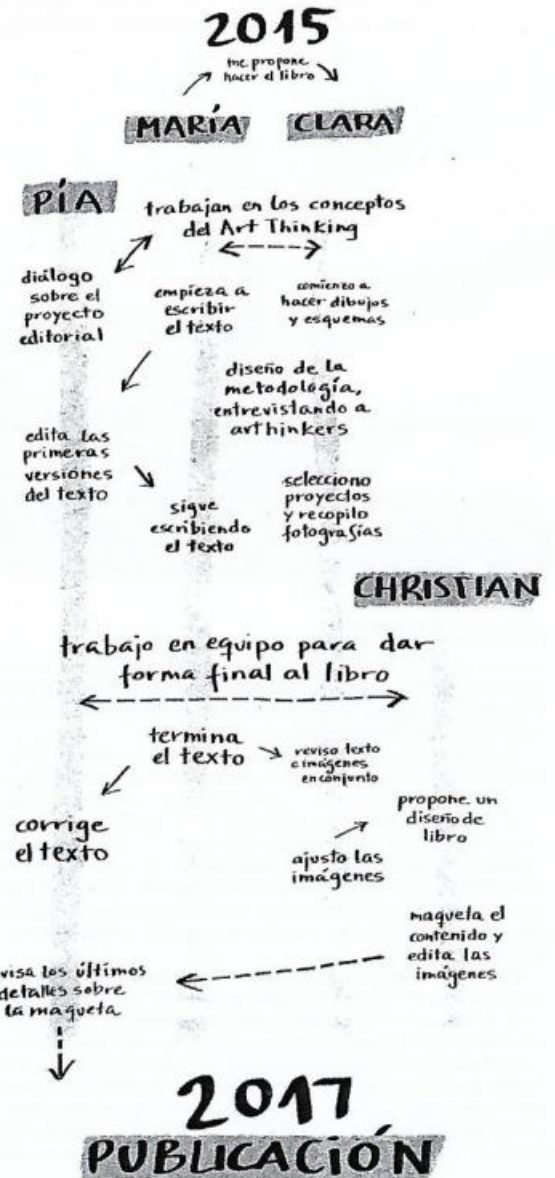 2015
me propone
hacer el libro
MARÍA CLARA
PÍA
trabajan en los conceptos
del Art Thinking
diálogo
sobre el
proyecto
editorial
empieza a
escribir
el texto
comienzo a
hacer dibujos
y esquemas
diseño de la
metodología,
entrevistando a
arthinkers
edita las
primeras
versiones
del texto
sigue
escribiendo
el texto
selecciono
proyectos
y recopilo
fotografías
CHRISTIAN
trabajo en equipo para dar
forma final al libro
termina
el texto
reviso texto
e imágenes
en conjunto
corrige
el texto
propone un
diseño de
libro
ajusto las
imágenes
maqueta el
contenido y
edita las
imágenes
visa los últimos
detalles sobre
la maqueta
2017
PUBLICACIÓN